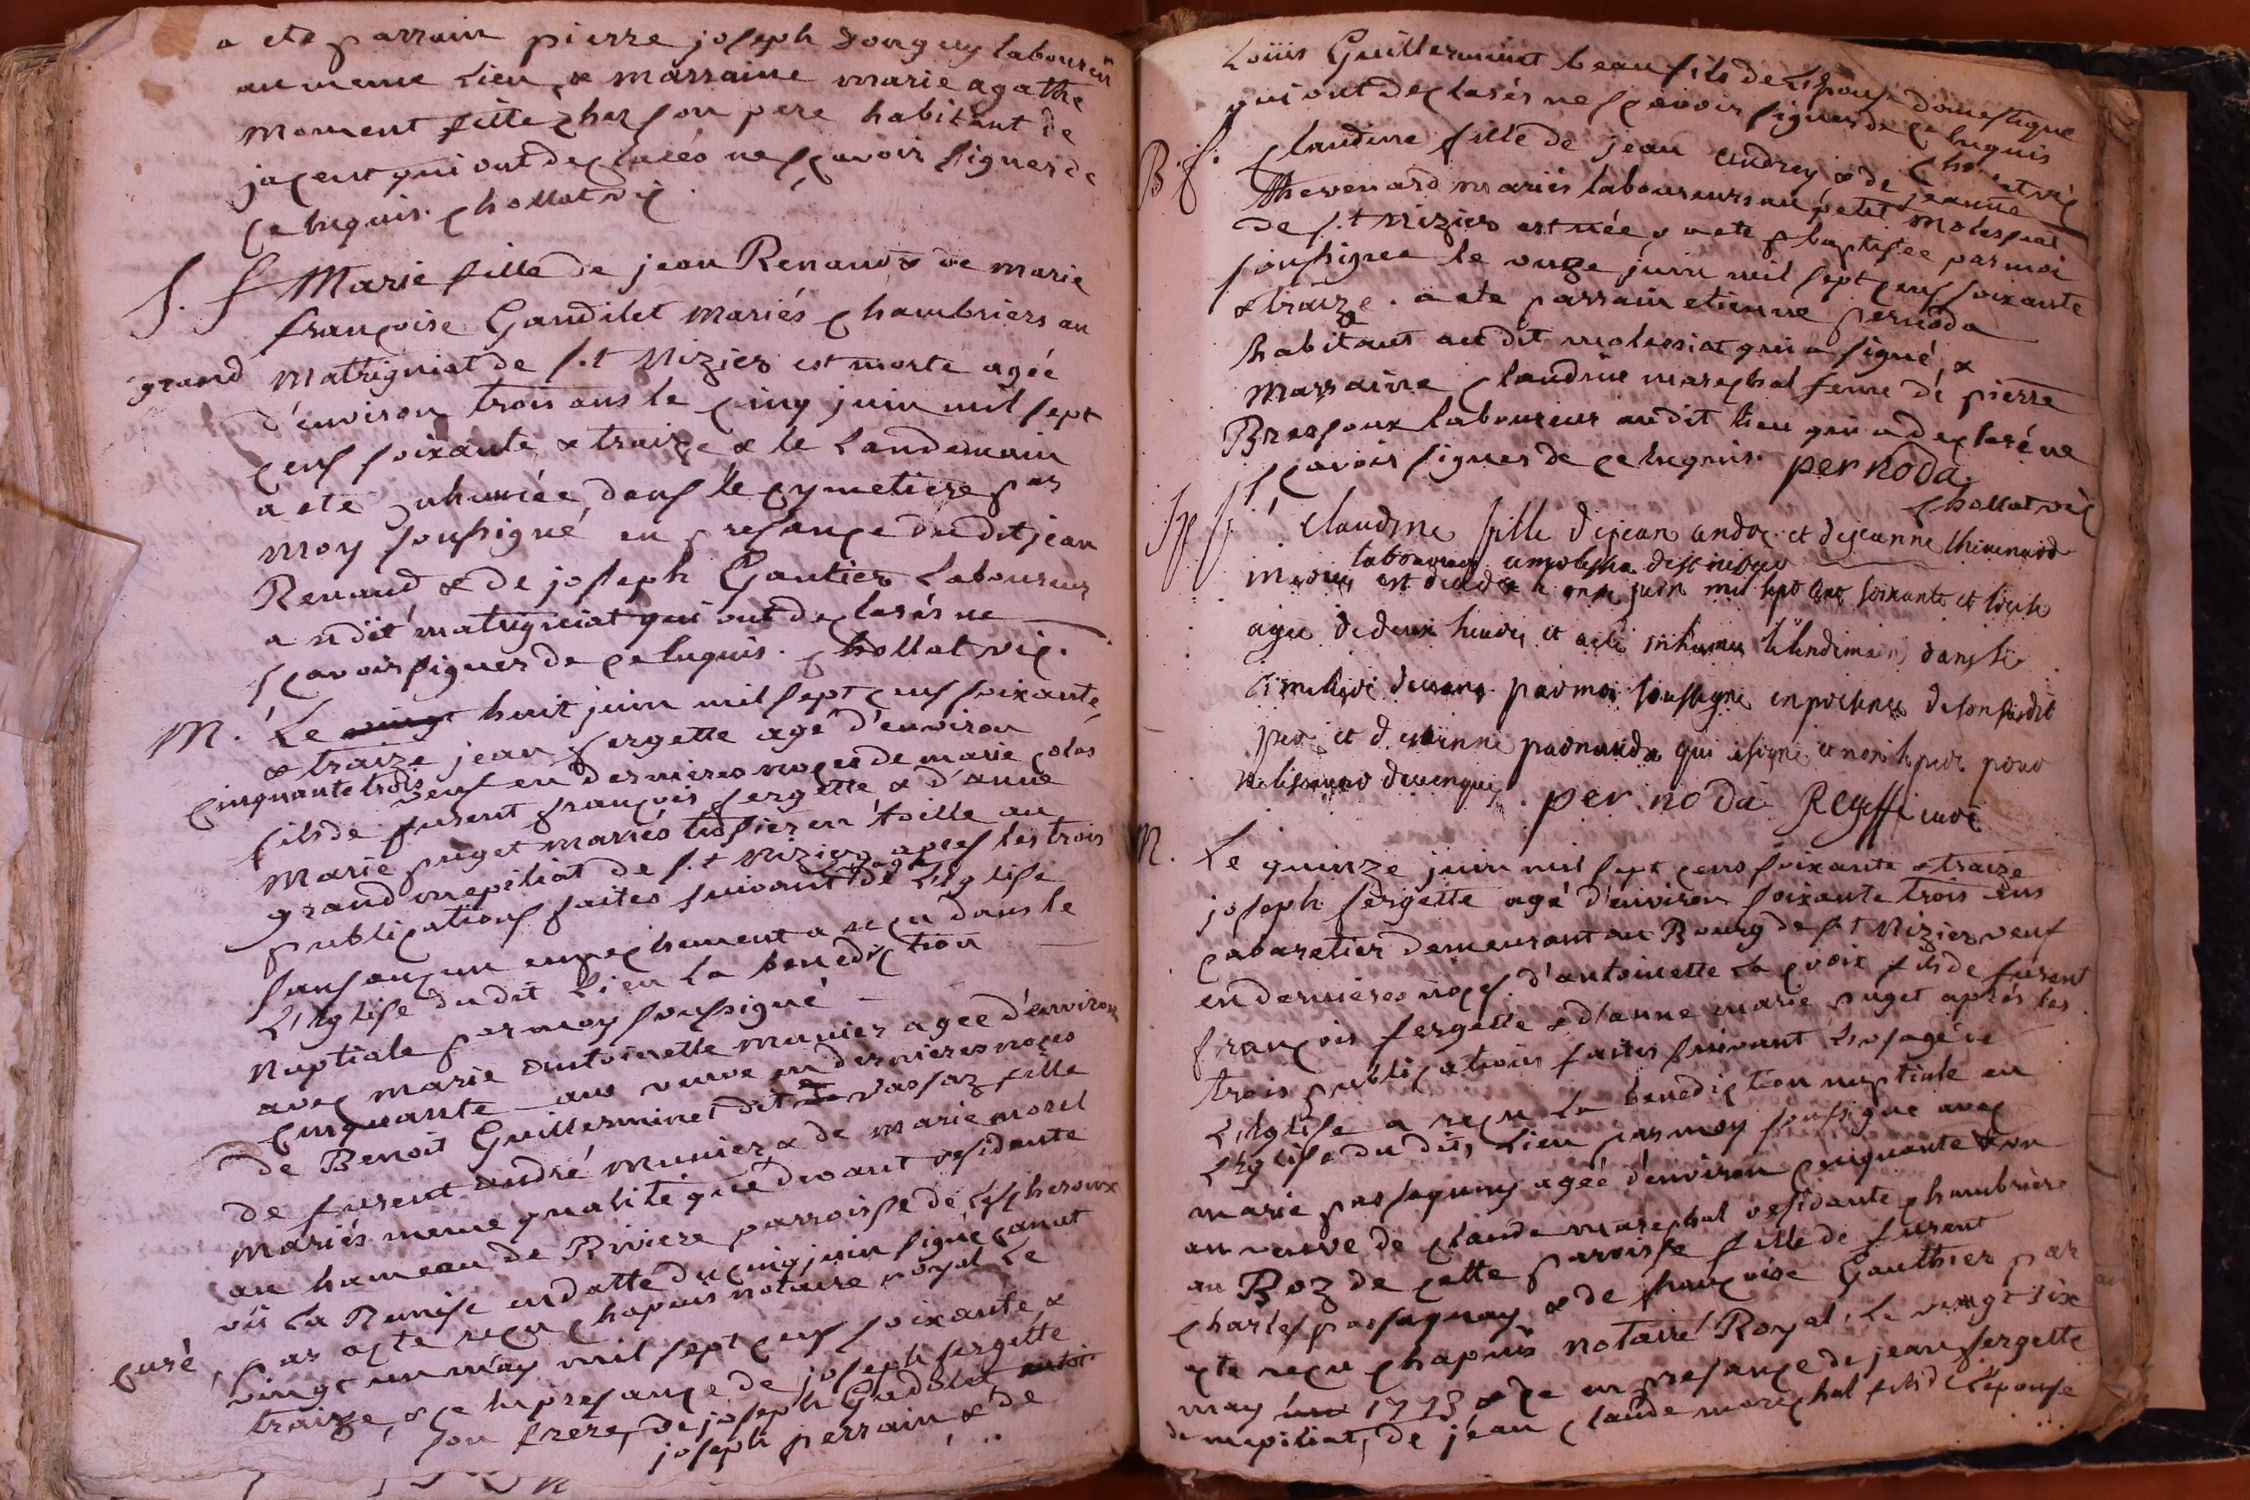 a ete parrain pierre joseph donguy laboureur
au meme Lieu, & marraine marie agathe
Moment fille chez son pere habitant de
jacent qui ont declarés ne scavoir signer de
ce enquis. chollat vic
S. f Marie fille de jean Renaud & de marie
françoise Gandilet Mariés chambriers au
grand Matrigniat de S.t Nizier est morte agée
d'environ trois ans le cinq juin mil sept
cens soixante & traize & le Landemain
a ete inhumée dans le cymetiere par
moy soussigné en presance du dit jean
Renaud & de joseph Gautier Laboureur
au dit matrigniat qui ont declarés ne
scavoir signer de ce enquis. chollat vic.
M. Le huit juin mil sept cens soixante
& traize jean fergette agé d'environ
cinquante trois veuf en dernieres noces de marie colas
fils de furent françois fergette & d'anne
Marie puget mariés tissier en toille au
grand mepiliat de S.t Nizier apres les trois
publications faites suivant l'usage de L'Eglise
sans aucun empechement a reçu dans le
L'Eglise du dit Lieu La benediction
Nuptiale par moy soussigné
avec marie antoinette munier agee d'environ
cinquante ans veuve en dernieres noces
de Benoit Guillerminet dit vassaz fille
de furent andré munier & de marie morel
Mariés meme qualité que devant residante
au hameau de Riviere parroisse de Lescheroux
vü La Remise en datte du cinq juin signé canat
curé, par acte reçu chapuis notaire royal Le
vingt un may mil sept cens soixante &
traize, & ce en presance de joseph fergette
son frere, de joseph Gadolet
joseph perrain & de
Loüis Guillerminet beau fils de L'Epouse domestique
qui ont declarés ne scavoir signer de ce enquis
chollat vic
B. f. claudine fille de jean andrey & de jeanne
thevenard mariés laboureurs au petit molessiat
de S.t Nizier est née, & a ete baptisee par moi
soussigné le onze juin mil sept cens soixante
& traize. a ete parrain etienne pernoda
habitant au dit molessiat qui a signé, &
Marraine claudine marechal feme de pierre
Bressoux laboureur au dit lieu qui a declaré ne
scavoir signer de ce enquis. pernoda
chollat vic
Sp f. claudine fille de jean andre et de jeanne thevenard
laboureurs
mariés est decedee le onze juin mil sept cent soixante et treize
agee de deux heures et a été inhumee le lendemain dans le
cimetiere par moi soussigné en presence de son susdit
pere et d'etienne pernauda qui a signé et non le pere pour
ne le scavoir de ce enquis. pernoda
M. Le quinze juin mil sept cens soixante & traize
joseph fergette agé d'environ soixante trois ans
cabaretier demeurant au Bourg de S.t Nizier veuf
en dernieres noces d'antoinette La croix fils de furent
françois fergette & d'anne marie puget aprés les
trois publications faites suivant L'usage de
L'Eglise a reçu La benediction nuptiale en
L'Eglise du dit Lieu par moy soussigné avec
marie passaquay agée d'environ cinquante & un
an veuve de claude marechal residante chambriere
au Boz de cette paroisse fille de furent
charles passaquay & de françoise Gauthier par
acte reçu chapuis notaire Royal, Le vingt six
may 1773 & ce en presance de jean fergette
de mepiliat, de jean claude marechal fils de L'épouse